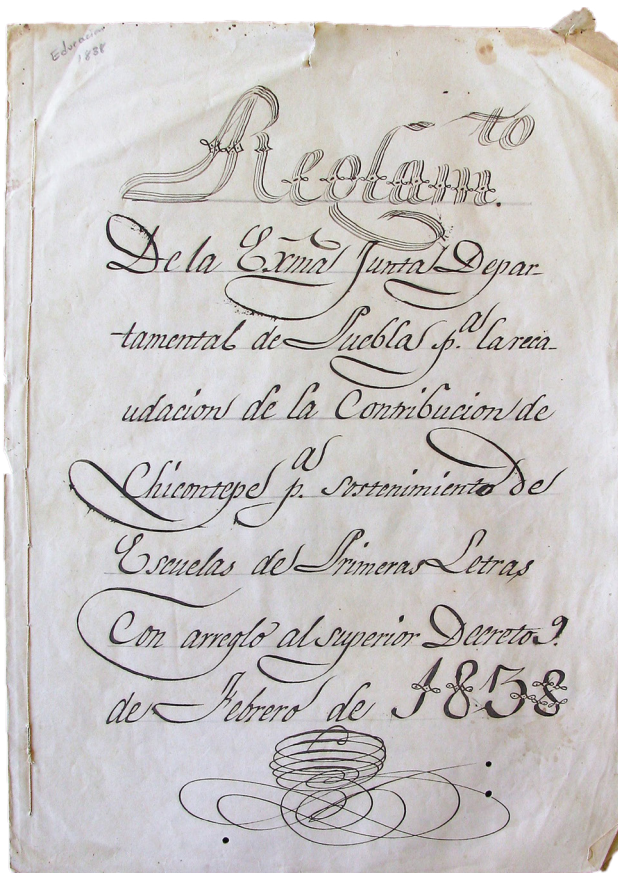 Educacion
1838
Reglam.to
De la Exma Junta Depar-
tamental de Puebla p.a la reca-
udacion de la Contribucion de
Chicontepe p.a sostenimiento de
Escuelas de Primeras Letras
Con arreglo al superior Decreto 9.
de Febrero de 1838